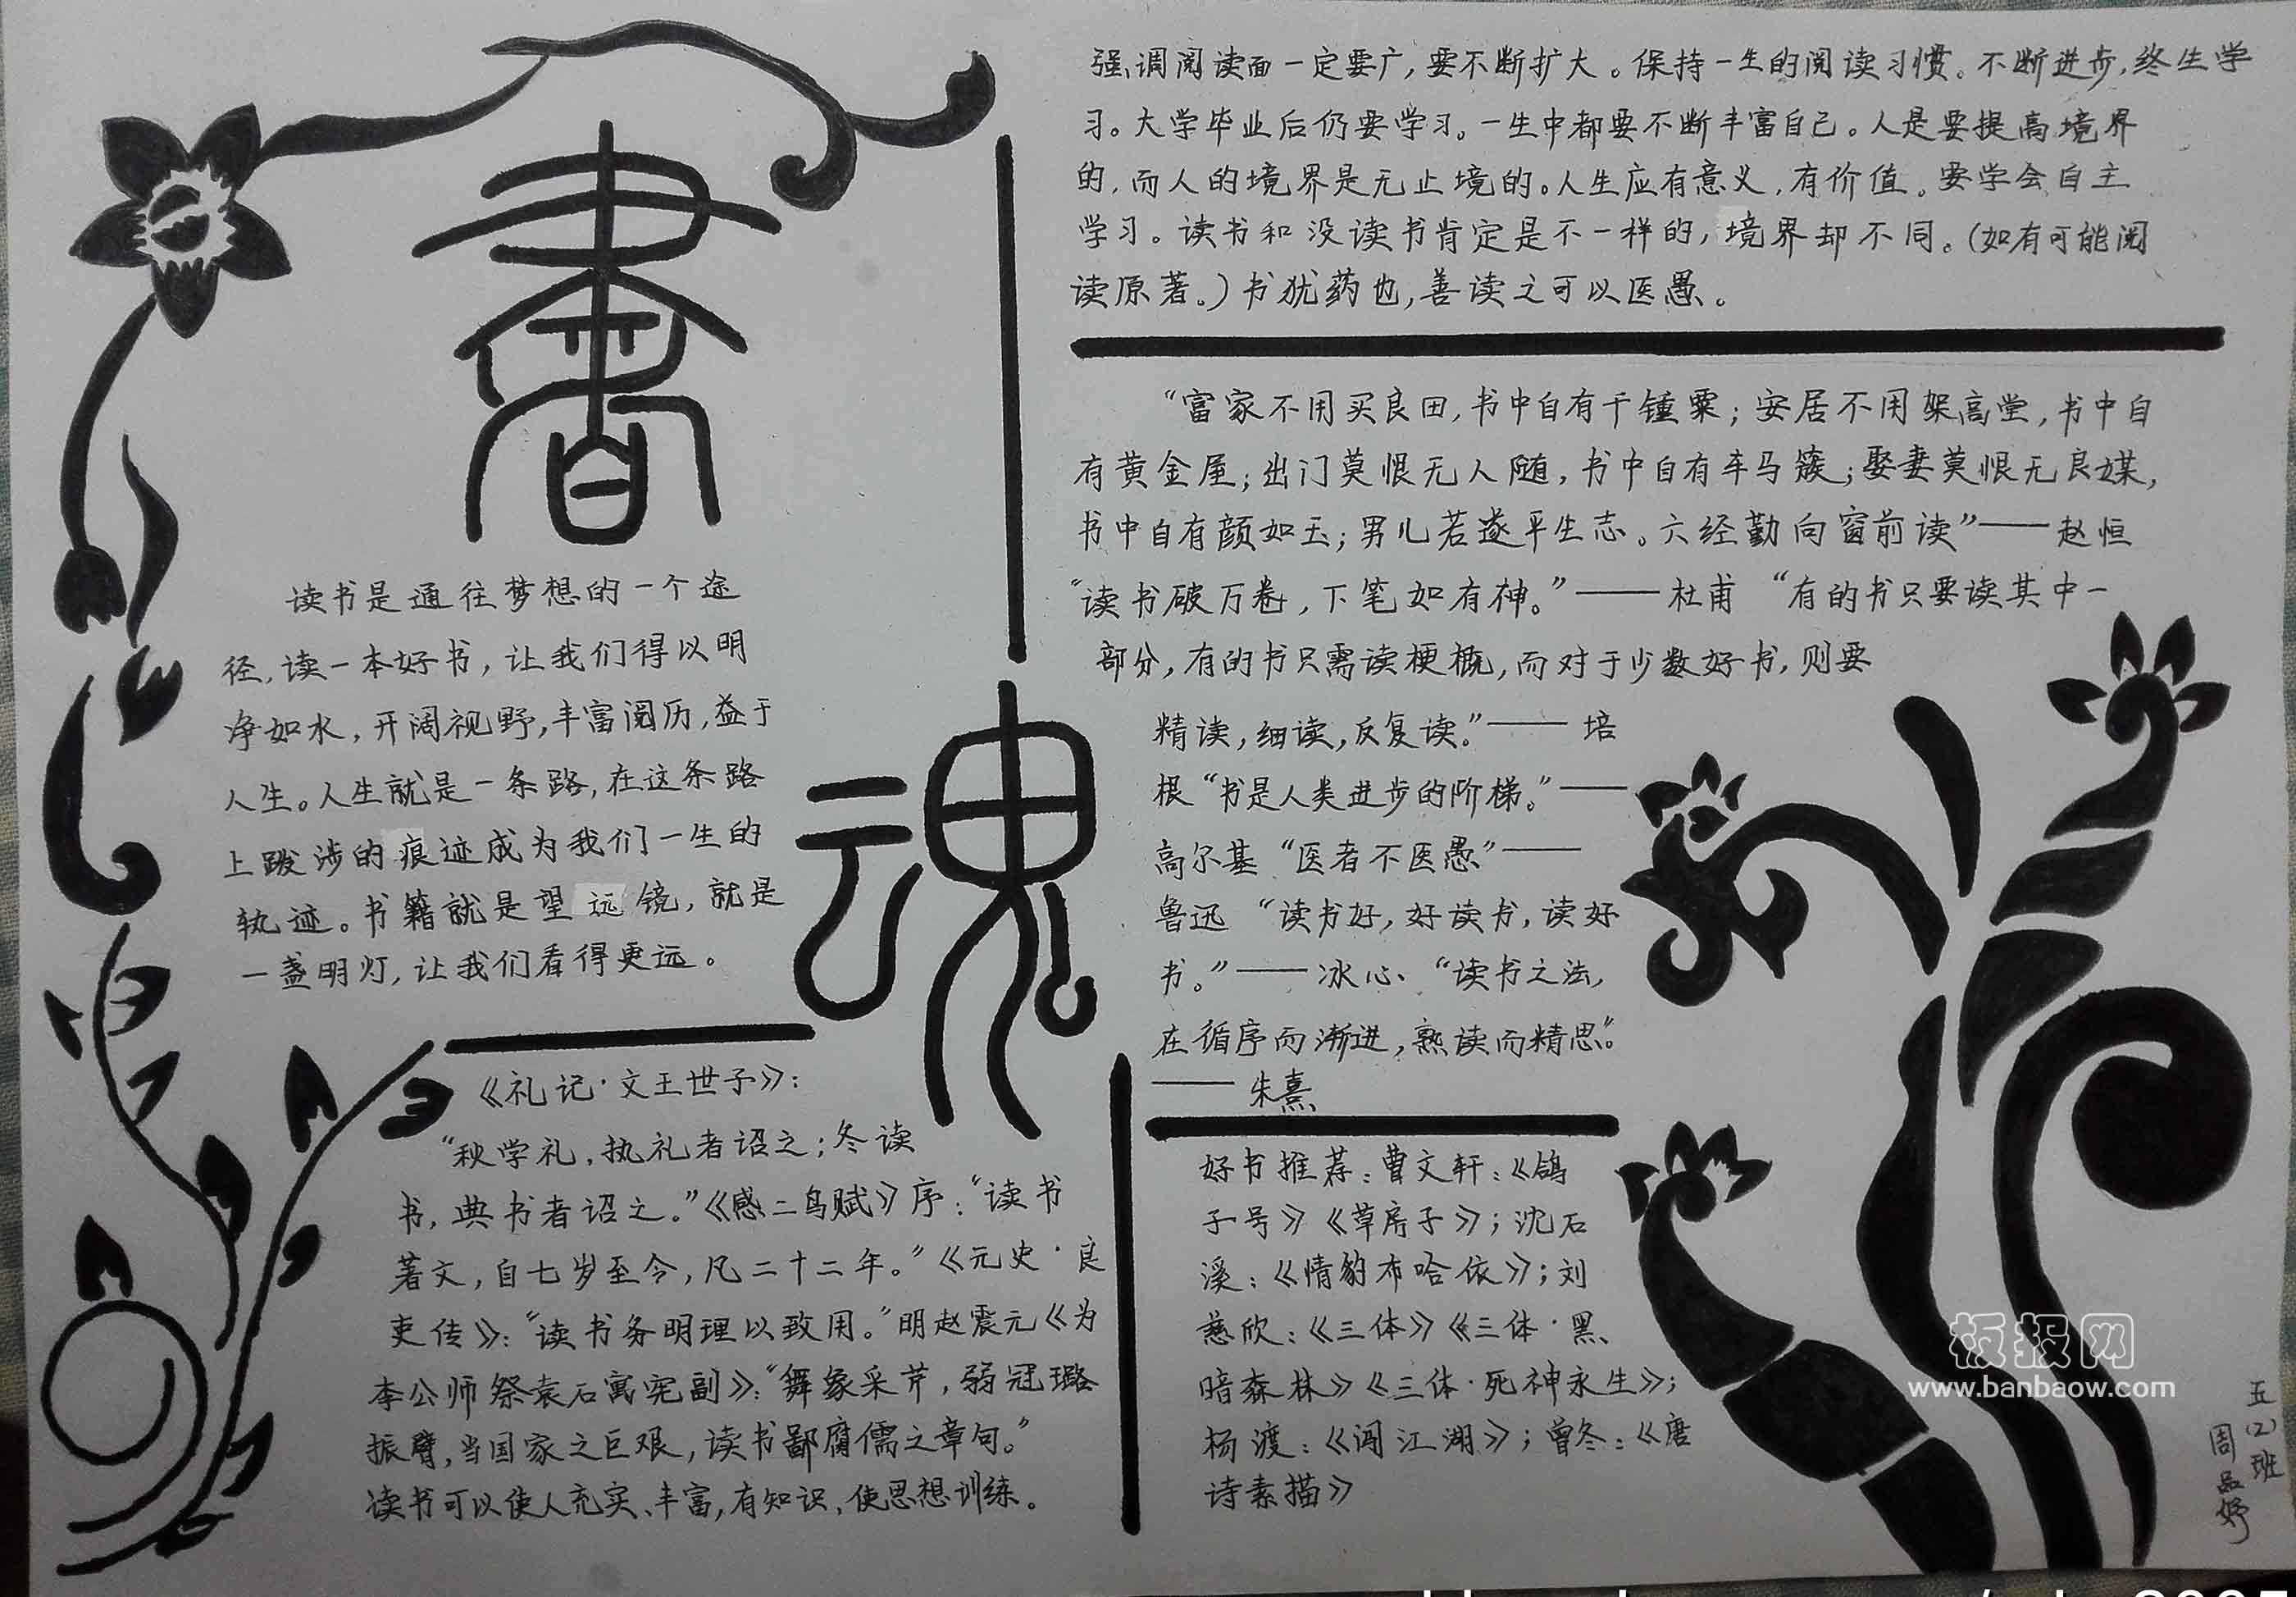 書
魂
读书是通往梦想的一个途
径,读一本好书,让我们得以明
净如水,开阔视野,丰富阅历,益于
人生。人生就是一条路,在这条路
上跋涉的痕迹成为我们一生的
轨迹。书籍就是望远镜,就是
一盏明灯,让我们看得更远。
《礼记·文王世子》:
“秋学礼,执礼者诏之;冬读
书,典书者诏之。”《感二鸟赋》序:“读书
著文,自七岁至今,凡二十二年。”《元史·良
吏传》:“读书务明理以致用。”明赵震元《为
李公师祭袁石寓宪副》:“舞象采芹,弱冠璐
振臂,当国家之巨艰,读书鄙腐儒之章句。”
读书可以使人充实、丰富,有知识,使思想训练。
强调阅读面一定要广,要不断扩大。保持一生的阅读习惯。不断进步,终生学
习。大学毕业后仍要学习。一生中都要不断丰富自己。人是要提高境界
的,而人的境界是无止境的。人生应有意义,有价值。要学会自主
学习。读书和没读书肯定是不一样的,境界却不同。(如有可能阅
读原著。)书犹药也,善读之可以医愚。
“富家不用买良田,书中自有千锺粟;安居不用架高堂,书中自
有黄金屋;出门莫恨无人随,书中自有车马簇;娶妻莫恨无良媒,
书中自有颜如玉;男儿若遂平生志。六经勤向窗前读”——赵恒
“读书破万卷,下笔如有神。”——杜甫 “有的书只要读其中一
部分,有的书只需读梗概,而对于少数好书,则要
精读,细读,反复读。”——培
根“书是人类进步的阶梯。”——
高尔基“医者不医愚”——
鲁迅 “读书好,好读书,读好
书。”——冰心、“读书之法,
在循序而渐进,熟读而精思。”
——朱熹
好书推荐:曹文轩:《鸽
子号》《草房子》;沈石
溪:《情豹布哈依》;刘
慈欣:《三体》《三体·黑
暗森林》《三体·死神永生》;
杨渡:《闯江湖》;曾冬:《唐
诗素描》
板报网
www.banbaow.com
五(2)班
周品妤